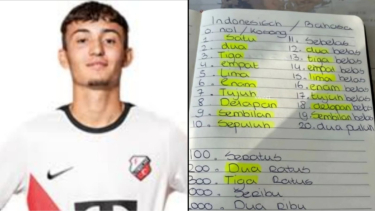 Indonesisch / Bahasa
0. nol / kosong
1. Satu 11. Sebelas
2. dua 12. dua belas
3. Tiga 13. tiga belas
4. empat 14. empat belas
5. Lima 15. lima belas
6. Enam 16. enam belas
7. Tujuh 17. tujuh belas
8. Delapan 18. delapan belas
9. Sembilan 19. Sembilan belas
10. Sepuluh 20. dua puluh
100. Seratus
200. Dua Ratus
300. Tiga Ratus
000. Seribu
000. Dua Ribu